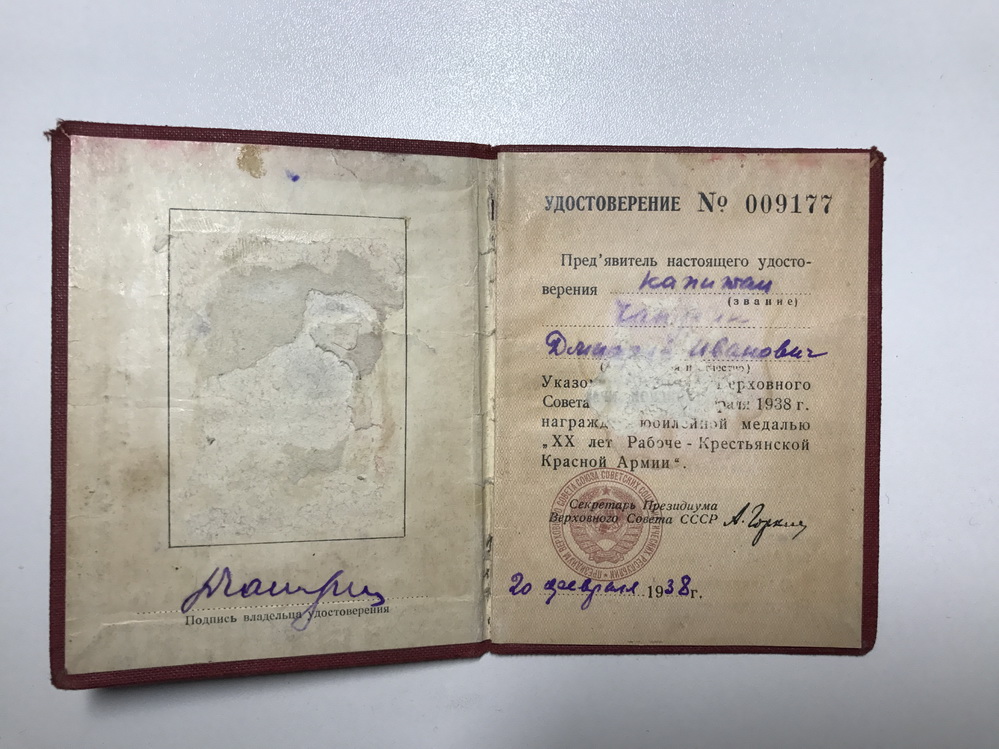 Подпись владельца удостоверения
УДОСТОВЕРЕНИЕ № 009177
Пред'явитель настоящего удосто-
верения капитан
(звание)
Дмитрий Иванович
Верховного
Совета 1938 г.
юбилейной медалью
„XX лет Рабоче-Крестьянской
Красной Армии“.
Секретарь Президиума
Верховного Совета СССР А. Горкин
20 февраля 1938 г.